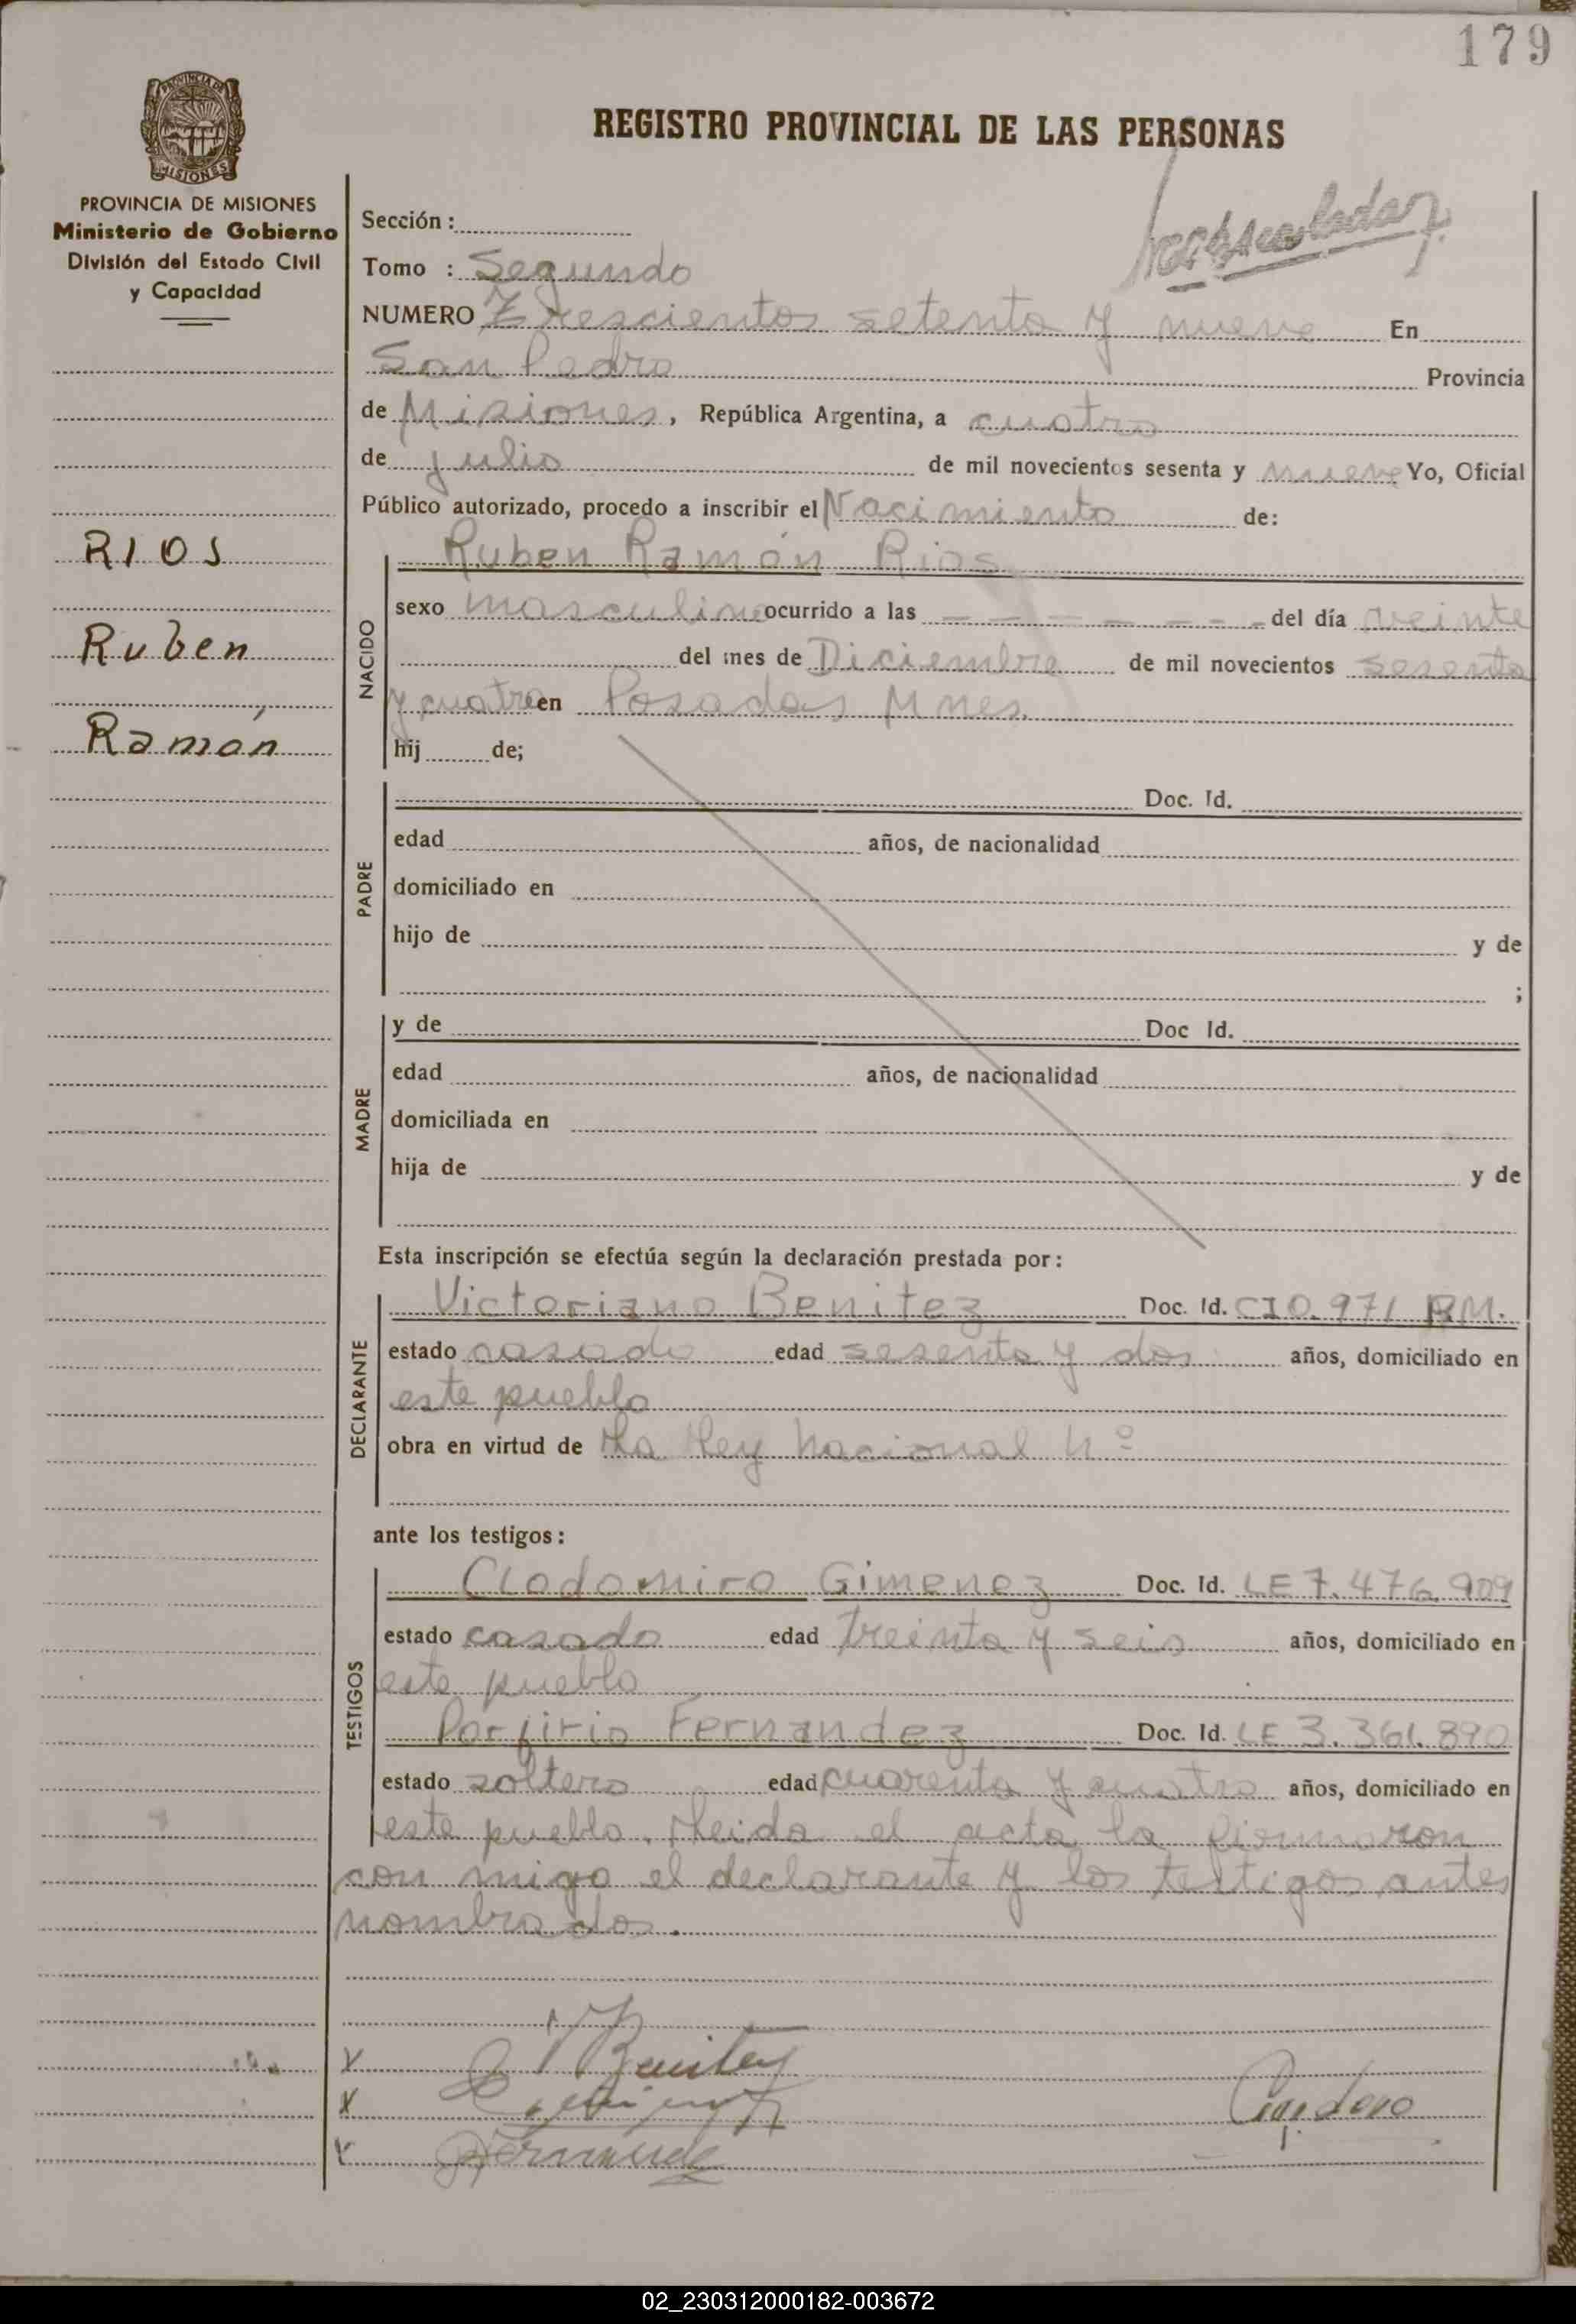 179
REGISTRO PROVINCIAL DE LAS PERSONAS
PROVINCIA DE MISIONES
Ministerio de Gobierno
División del Estado Civil
y Capacidad
Sección :
Tomo : Segundo
NUMERO Trescientos setenta y nueve En
San Pedro Provincia
de Misiones, República Argentina, a cuatro
de julio de mil novecientos sesenta y nueve Yo, Oficial
Público autorizado, procedo a inscribir el Nacimiento de:
RIOS
Ruben
Ramón
NACIDO
Ruben Ramón Rios
sexo masculino ocurrido a las - - - - - - - - del día veinte
del mes de Diciembre de mil novecientos sesenta
y cuatro en Posadas Mnes.
hij de;
PADRE
Doc. Id.
edad años, de nacionalidad
domiciliado en
hijo de y de
;
MADRE
y de Doc Id.
edad años, de nacionalidad
domiciliada en
hija de y de
Esta inscripción se efectúa según la declaración prestada por:
DECLARANTE
Victoriano Benitez Doc. Id. CI 0.971 RM.
estado casado edad sesenta y dos años, domiciliado en
este pueblo
obra en virtud de La Ley Nacional Nº
ante los testigos:
TESTIGOS
Clodomiro Gimenez Doc. Id. LE 7.476.909
estado casado edad treinta y seis años, domiciliado en
este pueblo
Porfirio Fernandez Doc. Id. LE 3.361.890
estado soltero edad cuarenta y cuatro años, domiciliado en
este pueblo. Leida el acta la firmaron
con migo el declarante y los testigos antes
nombrados.
x Benitez
x
x Fernandez
02_230312000182-003672